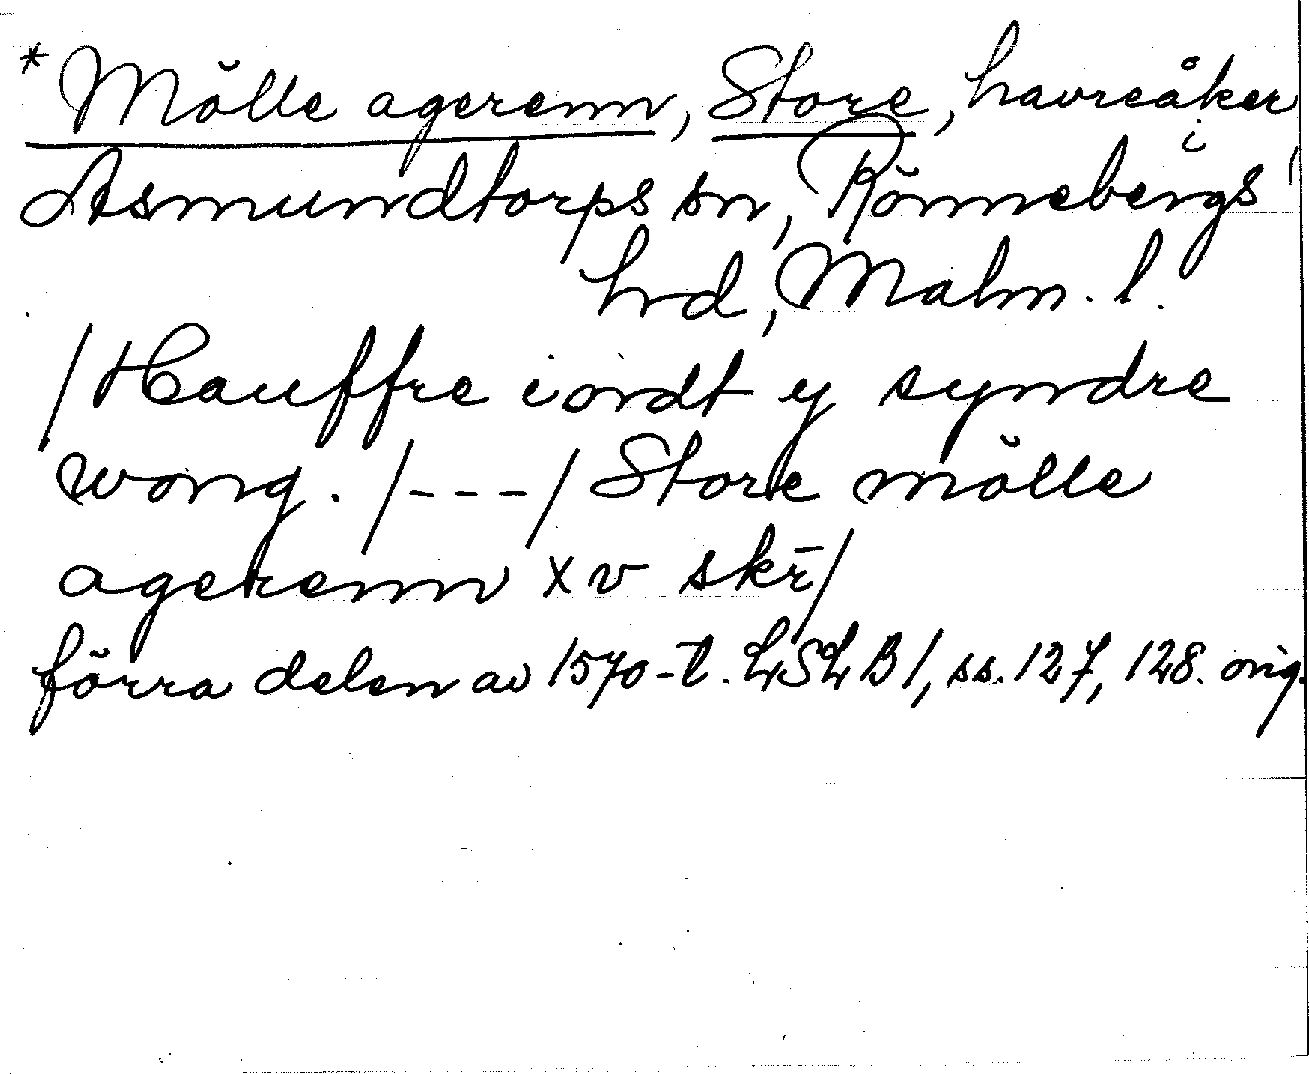 * Mölle agerenn, Store, havreåker i
Asmundtorps sn, Rönnebergs
hrd, Malm. l.
/Hauffre iordt y syndre
wong. /---/ Store mölle
agerenn x v skr̄/
förra delen av 1570-t. LSLB1, ss. 127, 128. orig.